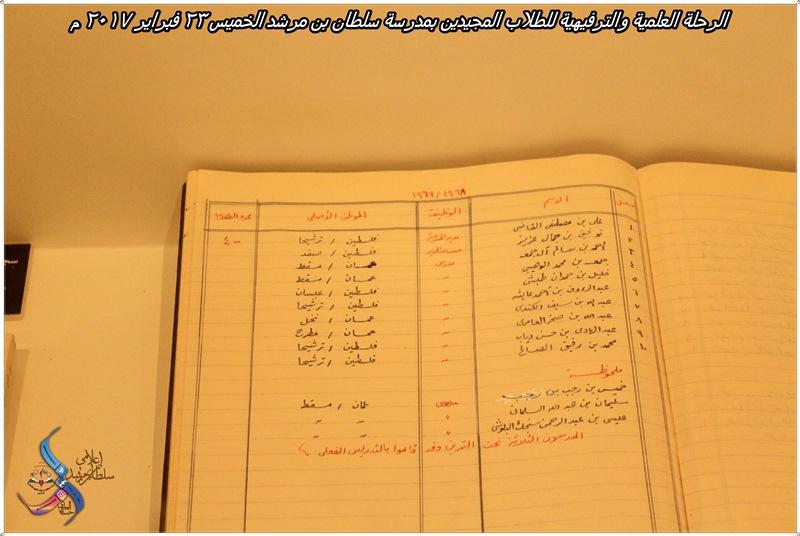 الرحلة العلمية والترفيهية للطلاب المجيدين بمدرسة سلطان بن مرشد الخميس ٢٣ فبراير ٢٠١٧ م
١٩٦٧/١٩٦٨
الاسم الوظيفة الموطن الأصلى عدد الطلاب
١ على بن مصطفى القاضى مدير المدرسة فلسطين / ترشيحا
٢ توفيق بن جمال عزيز مساعد المدير فلسطين / صفد
٣ أحمد بن سالم آل جمعه مدرس عمان / مسقط
٤ جمعه بن محمد الوهيبى " عمان / مسقط
٥ خليل بن حمدان " فلسطين /
٦ عبد الرؤوف بن أحمد عايشه " فلسطين / ترشيحا
٧ عبد الله بن سيف الكندى " عمان / نخل
٨ عبد الله بن صخر العامرى " عمان / مطرح
٩ عبد الهادى بن حسن دياب " فلسطين / ترشيحا
١٠ محمد بن رفيق " فلسطين / ترشيحا
ملحوظة
خميس بن رجب بن مدرس عمان / مسقط
سليمان بن عبد الله السلمانى " " "
عيسى بن عبد الرحمن البلوشى " " "
المدرسون الثلاثة تحت التمرين وقد قاموا بالتدريس الفعلى
إعلامي